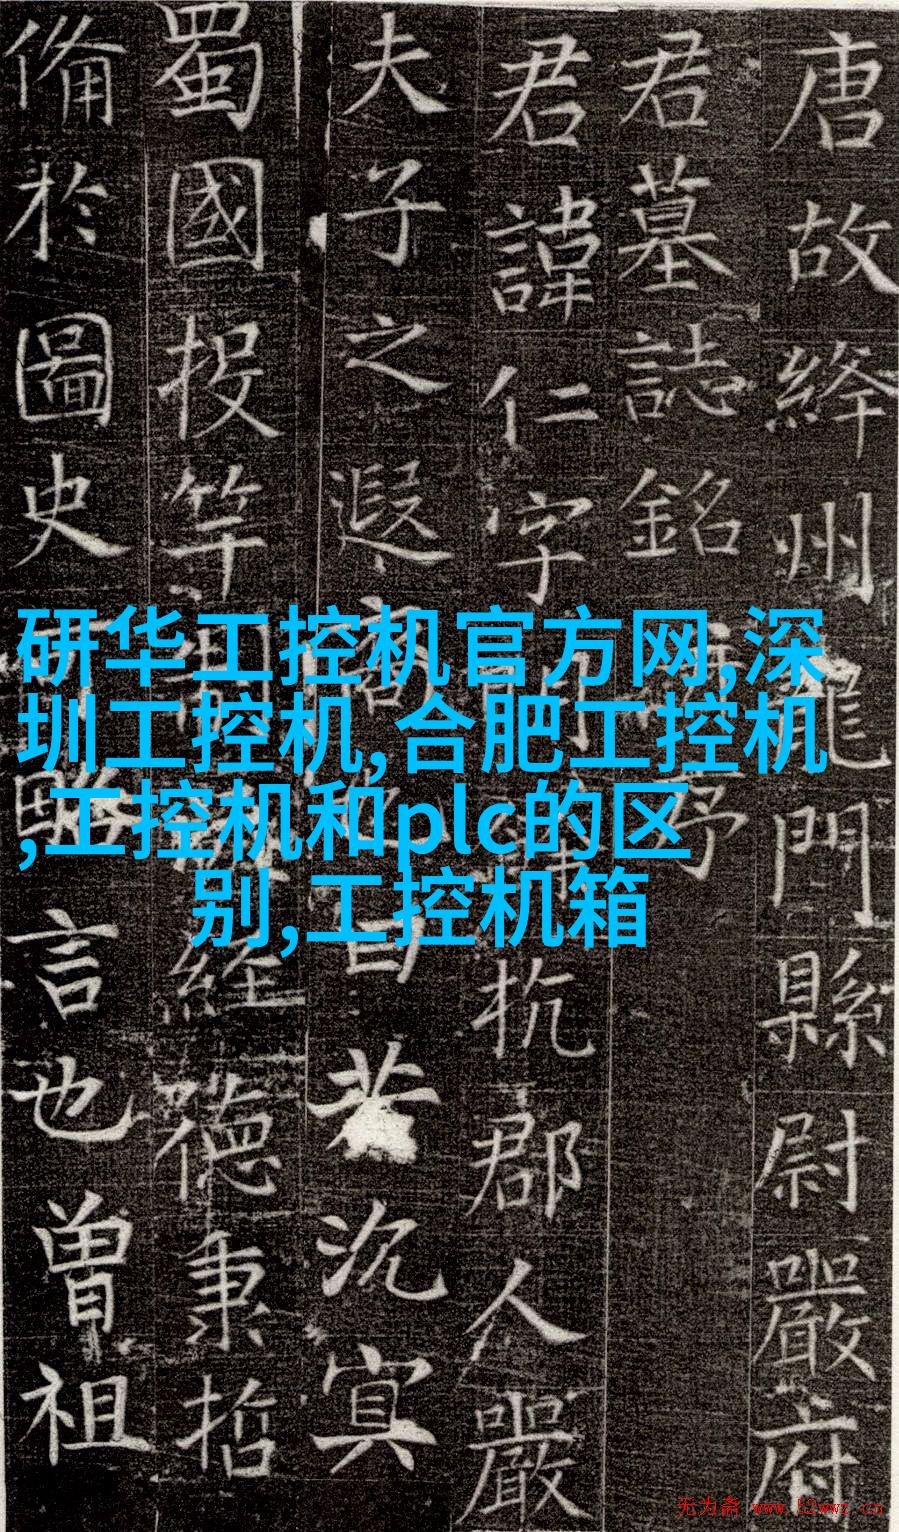 唐故絳州龍門縣尉嚴府
君墓誌銘
君諱仁字杭郡人嚴
夫子之遐裔昔沉冥
蜀國投竿經德秉哲
備於圖史略言也曾祖
研华工控机官方网,深
圳工控机,合肥工控机
,工控机和plc的区
别,工控机箱
无为斋 www.52wwz.cn